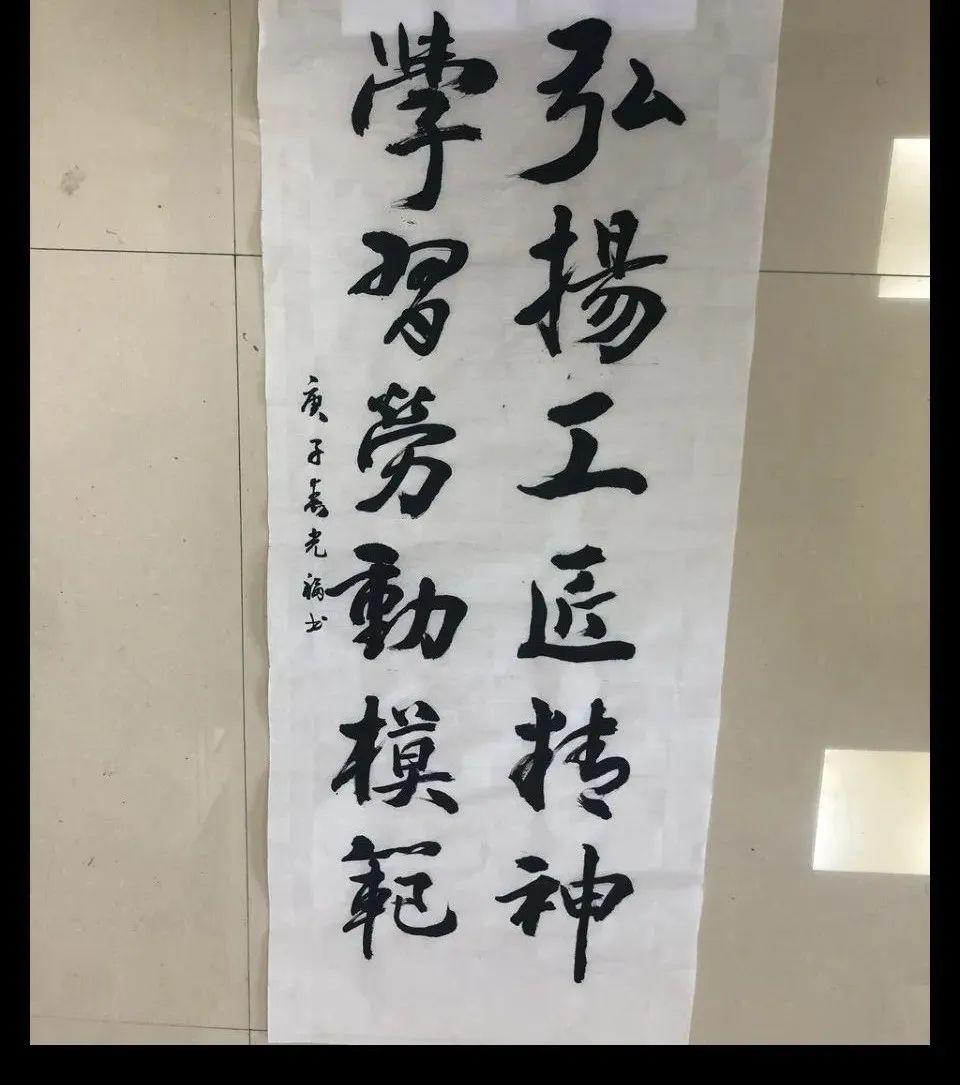 弘揚工匠精神
學習勞動模範
庚子春光福书